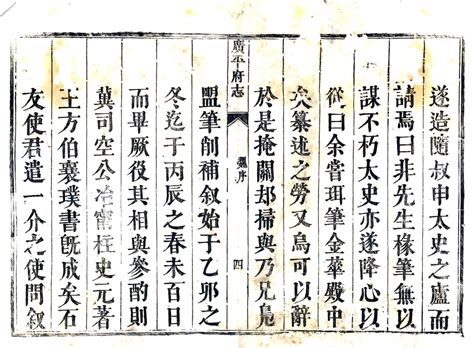 遂造隨叔申太史之廬而
請焉曰非先生椽筆無以
謀不朽太史亦遂降心以
從曰余嘗珥筆金華殿中
纂述之勞又烏可以辭
於是掩關却掃與乃兄鳧
廣平府志
序
四
盟筆削補叙始于乙卯之
冬迄于丙辰之春未百日
而畢厥役其相與參酌則
冀司空公冶甯柱史元著
王方伯襄璞書旣成矣石
友使君遣一介之使問叙